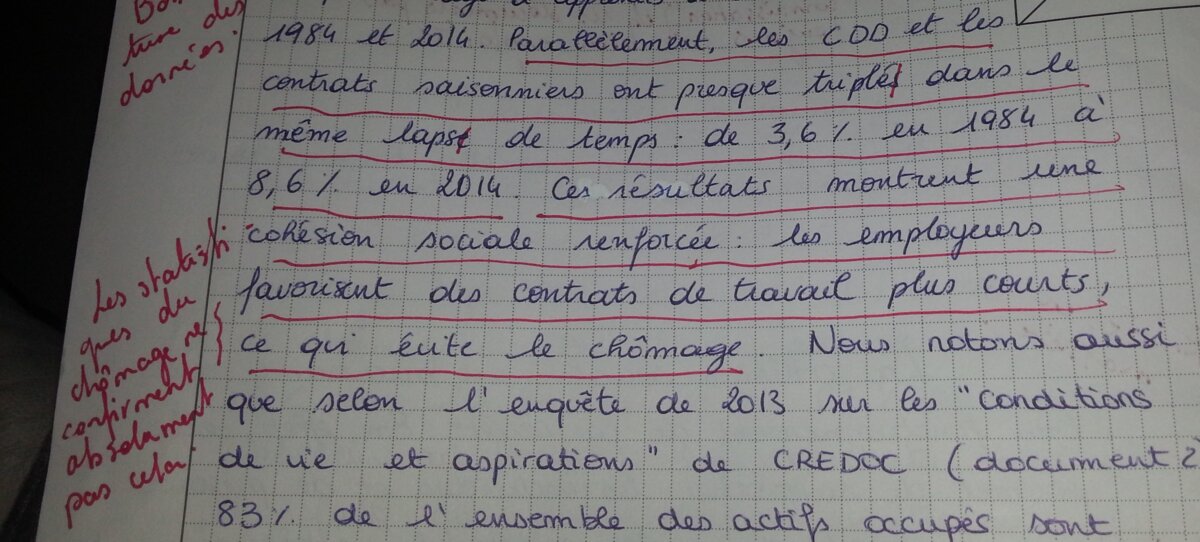 ture des
données.
1984 et 2014. Parallèlement, les CDD et les
contrats saisonniers ont presque triplé dans le
même laps de temps : de 3,6 % en 1984 à
8,6 % en 2014. Ces résultats montrent une
cohésion sociale renforcée : les employeurs
favorisent des contrats de travail plus courts,
ce qui évite le chômage. Nous notons aussi
que selon l'enquête de 2013 sur les "conditions
de vie et aspirations" de CREDOC (document 2
83% de l'ensemble des actifs occupés sont
Les statisti
ques du
chômage ne
confirment
absolument
pas cela.